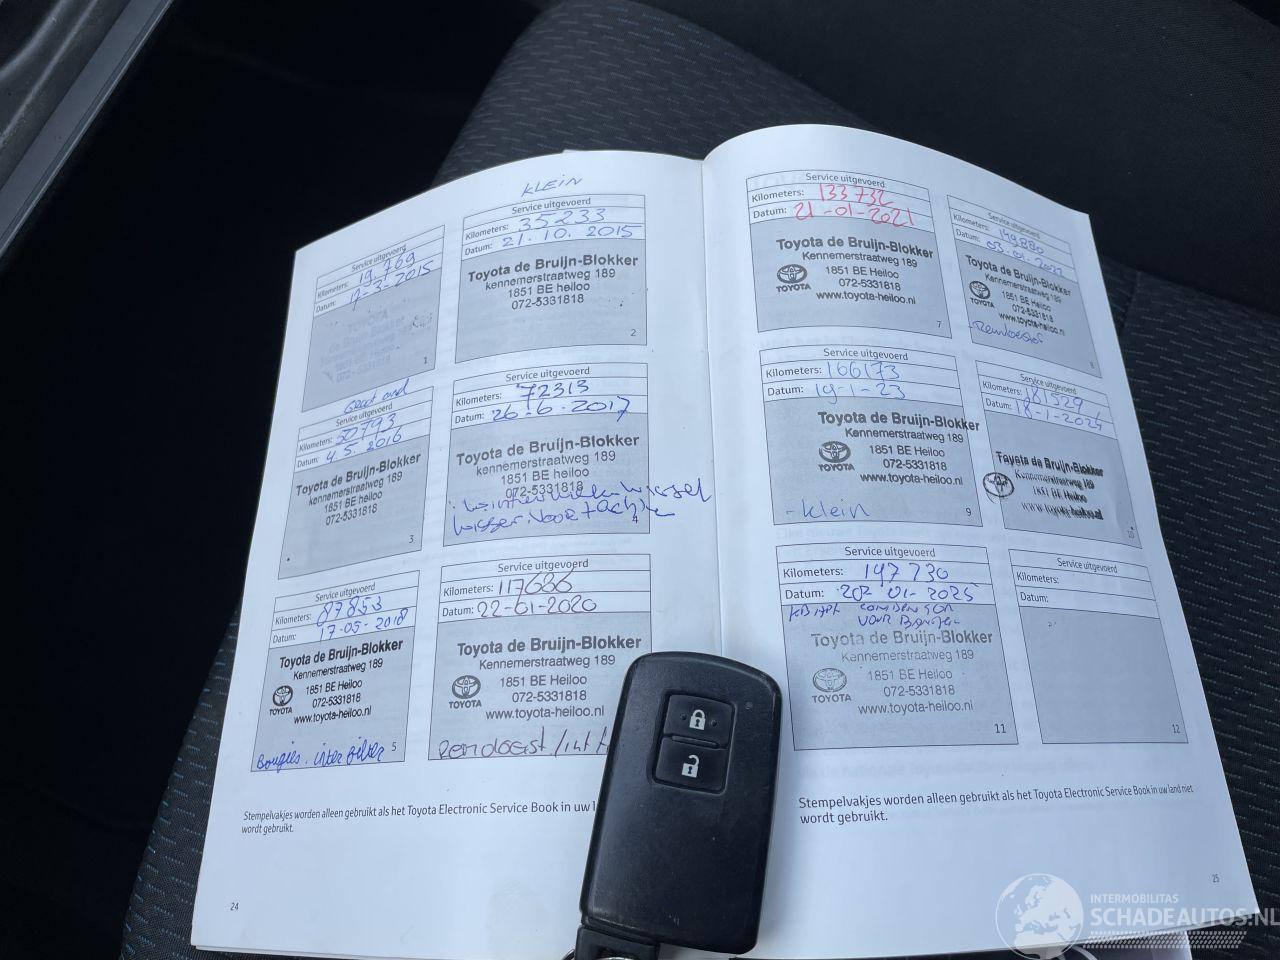 KLEIN
Service uitgevoerd
Kilometers: 19.769
Datum: 12-3-2015
TOYOTA
072-5331818
1
Service uitgevoerd
Kilometers: 35233
Datum: 21.10.2015
Toyota de Bruijn-Blokker
kennemerstraatweg 189
1851 BE heiloo
072-5331818
2
Groot
Service uitgevoerd
Kilometers: 50793
Datum: 4.5.2016
Toyota de Bruijn-Blokker
kennemerstraatweg 189
1851 BE heiloo
072-5331818
3
Service uitgevoerd
Kilometers: 72313
Datum: 26.6.2017
Toyota de Bruijn-Blokker
kennemerstraatweg 189
1851 BE heiloo
072-5331818
4
Service uitgevoerd
Kilometers: 87853
Datum: 17-05-2018
Toyota de Bruijn-Blokker
Kennemerstraatweg 189
1851 BE Heiloo
072-5331818
www.toyota-heiloo.nl
TOYOTA
Bougies, inter filter
5
Service uitgevoerd
Kilometers: 117686
Datum: 22-01-2020
Toyota de Bruijn-Blokker
Kennemerstraatweg 189
1851 BE Heiloo
072-5331818
www.toyota-heiloo.nl
TOYOTA
Stempelvakjes worden alleen gebruikt als het Toyota Electronic Service Book in uw
wordt gebruikt.
24
Service uitgevoerd
Kilometers: 133732
Datum: 21-01-2021
Toyota de Bruijn-Blokker
Kennemerstraatweg 189
1851 BE Heiloo
072-5331818
www.toyota-heiloo.nl
TOYOTA
7
Service uitgevoerd
Kilometers: 149880
Datum: 03-01-2022
Toyota de Bruijn-Blokker
Kennemerstraatweg 189
1851 BE Heiloo
072-5331818
www.toyota-heiloo.nl
TOYOTA
8
Service uitgevoerd
Kilometers: 166173
Datum: 19-1-23
Toyota de Bruijn-Blokker
Kennemerstraatweg 189
1851 BE Heiloo
072-5331818
www.toyota-heiloo.nl
TOYOTA
- klein
9
Service uitgevoerd
Kilometers: 181529
Datum: 18-1-2024
Toyota de Bruijn-Blokker
Kennemerstraatweg 189
1851 BE Heiloo
072-5331818
www.toyota-heiloo.nl
10
Service uitgevoerd
Kilometers: 197730
Datum: 202 01-2025
Toyota de Bruijn-Blokker
Kennemerstraatweg 189
1851 BE Heiloo
072-5331818
www.toyota-heiloo.nl
TOYOTA
11
Service uitgevoerd
Kilometers:
Datum:
12
Stempelvakjes worden alleen gebruikt als het Toyota Electronic Service Book in uw land niet
wordt gebruikt.
25
INTERMOBILITAS
SCHADEAUTOS.NL